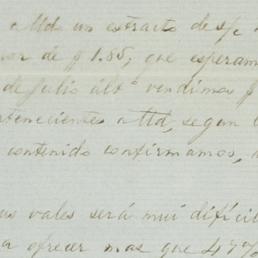 a Ud un extracto de s/c
de $1.85; que esperam
de Julio últº vendimos $
tenecientes a Ud, segun
contenido confirmamos,
vales será mui difícil
a ofrecer mas que 47%